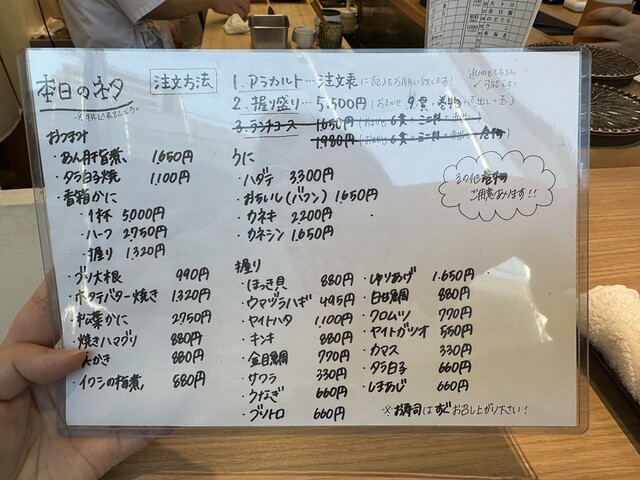 本日のネタ
注文方法
1. アラカルト…注文表に記入をお願い致します!
2. 握り盛り…5,500円(おまかせ 9貫・巻物・赤出し・玉)
追加もちろん
可能です!
3. ランチコース…1,650円
1,980円
おつまみ
・あん肝旨煮 1,650円
・タラ白子焼 1,100円
・香箱かに
・1杯 5,000円
・ハーフ 2,750円
・握り 1,320円
・ブリ大根 990円
・ホタテバター焼き 1,320円
・松葉かに 2,750円
・焼きハマグリ 880円
かき 880円
・イワシの梅煮 880円
うに
・ハダテ 3300円
・おちいし(バフン) 1,650円
・カネキ 2200円
・カネシン 1,650円
その他巻物
ご用意あります!!
握り
・ほっき貝 880円
・ウマヅラハギ 495円
・ヤイトハタ 1,100円
・キンキ 880円
・金目鯛 770円
・サワラ 330円
・うなぎ 660円
・ブリトロ 660円
・ゆりあげ 1,650円
・白甘鯛 880円
・クロムツ 770円
・ヤイトガツオ 550円
・カマス 330円
・タラ白子 660円
・しまあじ 660円
※お寿司はすぐお召し上がり下さい!